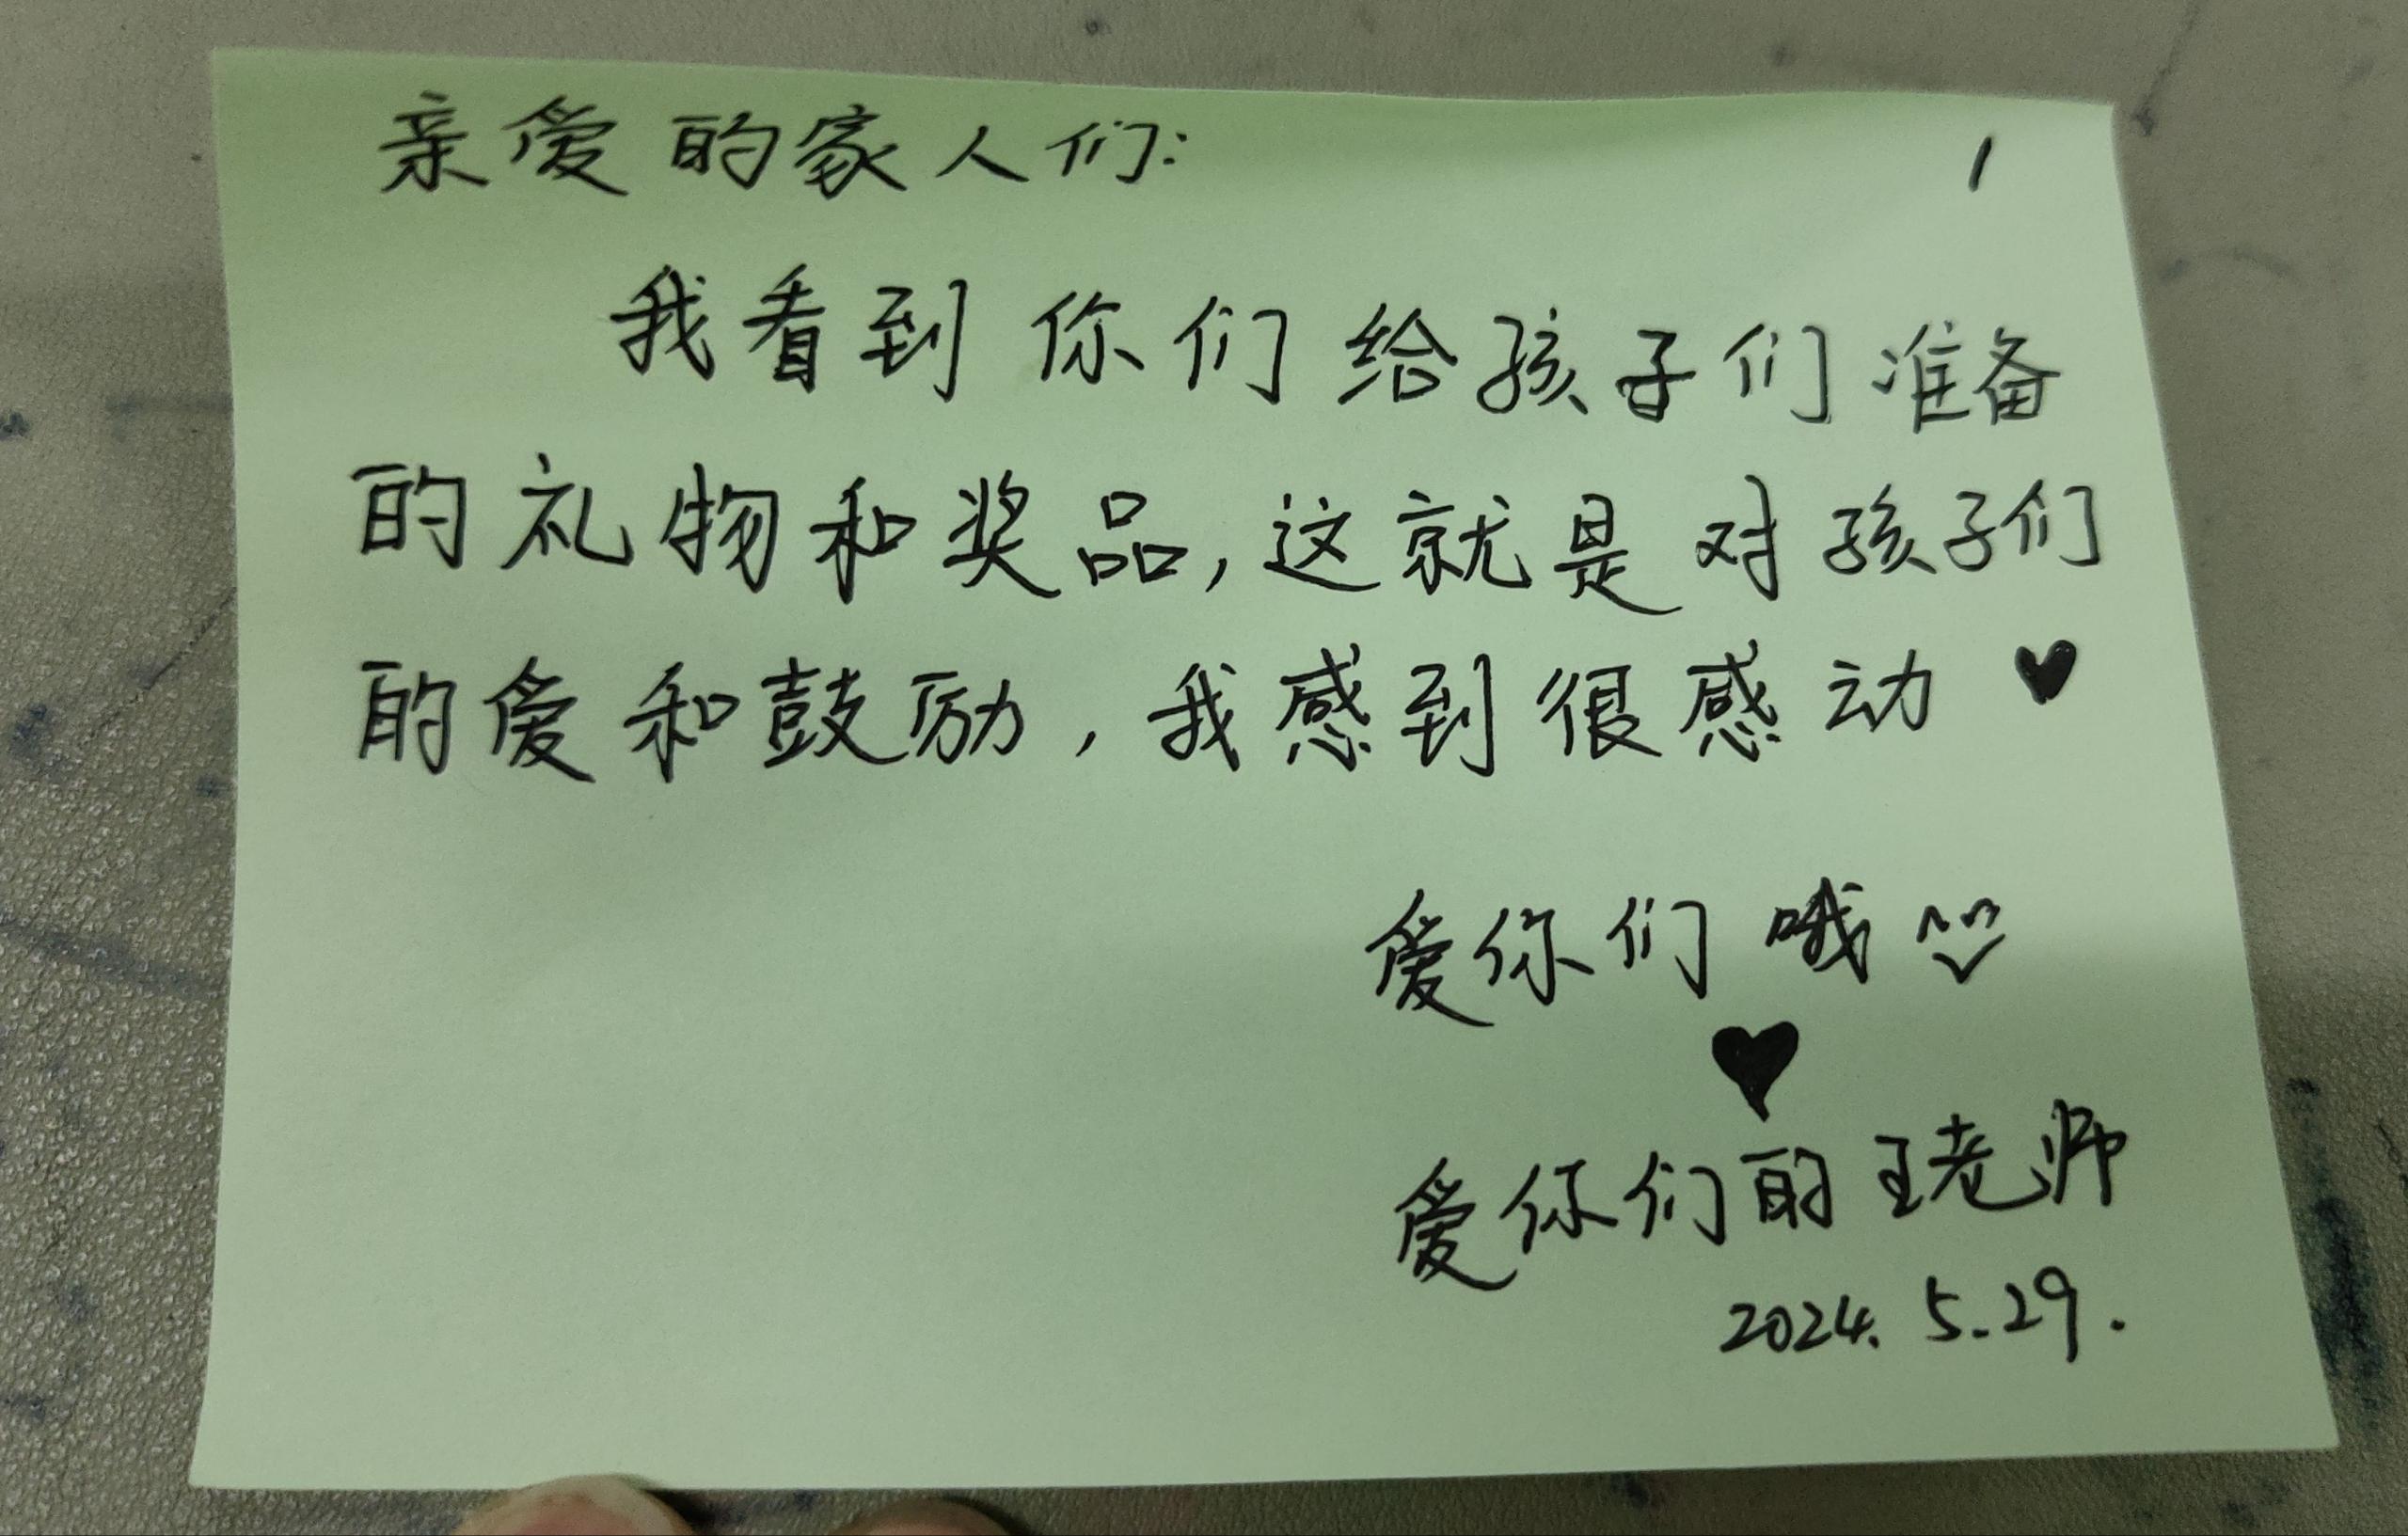 亲爱的家人们:
1
我看到你们给孩子们准备
的礼物和奖品,这就是对孩子们
的爱和鼓励,我感到很感动♥
爱你们哦
♥
爱你们的王老师
2024.5.29.